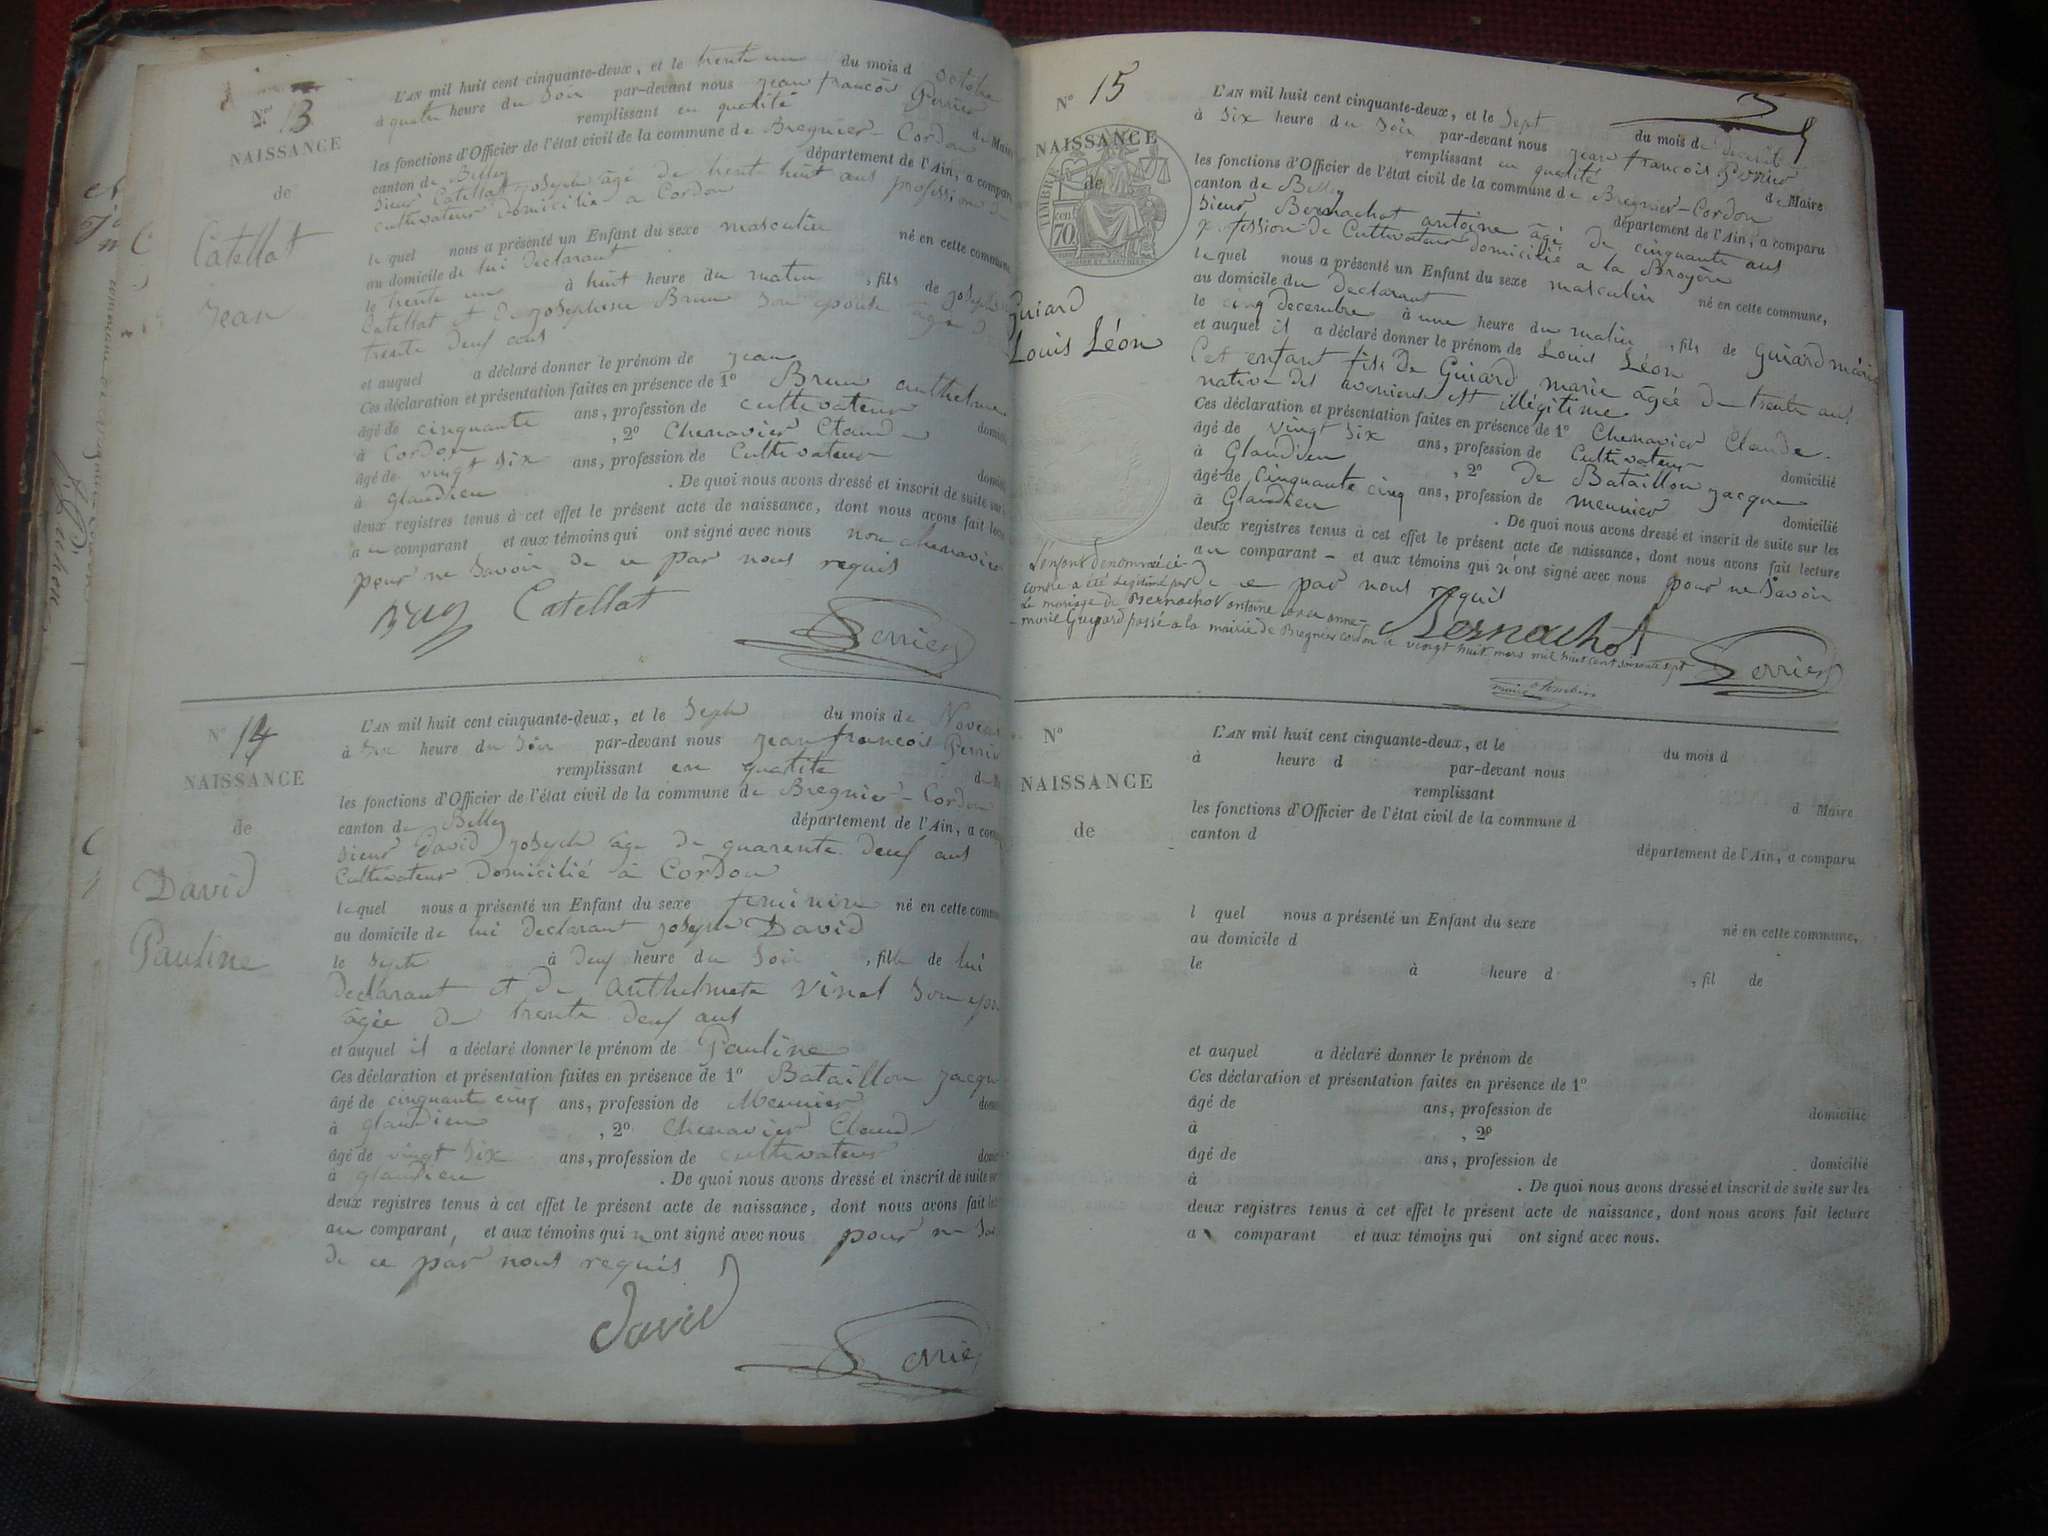 N.º 13
NAISSANCE
de
Catellat
Jean
L'AN mil huit cent cinquante-deux, et le trente un du mois d octobre
à quatre heure du Soir par-devant nous jean francois Perrier
remplissant en qualité de Maire
les fonctions d'Officier de l'état civil de la commune de Bregnier-Cordon
canton de Belley département de l'Ain, a comparu
Sieur Catellat joseph âgé de trente huit ans profession de
cultivateur Domicilié a Cordon
le quel nous a présenté un Enfant du sexe masculin né en cette commune
au domicile de lui declarant
le trente un à huit heure du matin , fils de joseph
Catellat et de josephine Brun Son epouse âgée d
trente deuf ans
et auquel a déclaré donner le prénom de jean
Ces déclaration et présentation faites en présence de 1º Brun anthelme
âgé de cinquante ans, profession de cultivateur domicilié
à Cordon , 2º Chenavier Claude
âgé de vingt Six ans, profession de Cultivateur domicilié
à glandieu . De quoi nous avons dressé et inscrit de suite sur les
deux registres tenus à cet effet le présent acte de naissance, dont nous avons fait lecture
au comparant et aux témoins qui ont signé avec nous non chenavier
pour ne Savoir de ce par nous requis
Catellat
Perrier
Nº 14
NAISSANCE
de
David
Pauline
L'AN mil huit cent cinquante-deux, et le Sept du mois de Novem
à Six heure du Soir par-devant nous jean francois Perrier
remplissant en qualité de
les fonctions d'Officier de l'état civil de la commune de Bregnier-Cordon
canton de Belley département de l'Ain, a comp
Sieur David joseph âgé de quarente deuf ans
Cultivateur Domicilié à Cordon
le quel nous a présenté un Enfant du sexe feminin né en cette commu
au domicile de lui declarant joseph David
le Sept à deuf heure du Soir , fille de lui
declarant et de anthelmete vinet Son epou
âgée de trente deuf ans
et auquel il a déclaré donner le prénom de Pauline
Ces déclaration et présentation faites en présence de 1º Bataillon jacque
âgé de cinquante cinq ans, profession de Meunier domi
à glandieu , 2º Chenavier Claude
âgé de vingt Six ans, profession de cultivateur domi
à glandieu . De quoi nous avons dressé et inscrit de suite sur
deux registres tenus à cet effet le présent acte de naissance, dont nous avons fait lec
au comparant, et aux témoins qui n ont signé avec nous pour ne Sav
de ce par nous requis
David
Perrier
Nº 15
NAISSANCE
de
TIMBRE
70 cent
Guiard
Louis Léon
L'AN mil huit cent cinquante-deux, et le Sept du mois de decembre
à Six heure du Soir par-devant nous jean francois Perrier
remplissant en qualité de Maire
les fonctions d'Officier de l'état civil de la commune de Bregnier-Cordon
canton de Belley département de l'Ain, a comparu
Sieur Bernachot antoine âgé de cinquante ans
profession de Cultivateur domicilié a la Broyère
le quel nous a présenté un Enfant du sexe masculin né en cette commune,
au domicile du declarant
le cinq decembre à une heure du matin , fils de Guiard marie
et auquel il a déclaré donner le prénom de Louis Léon
Cet enfant fils de Guiard marie âgée de trente ans
native des avenieres est illégitime
Ces déclaration et présentation faites en présence de 1º Chenavier Claude
âgé de vingt Six ans, profession de Cultivateur domicilié
à Glandieu , 2º de Bataillon jacque
âgé de cinquante cinq ans, profession de meunier domicilié
à Glandieu . De quoi nous avons dressé et inscrit de suite sur les
deux registres tenus à cet effet le présent acte de naissance, dont nous avons fait lecture
au comparant – et aux témoins qui n ont signé avec nous pour ne Savoir
de ce par nous requis
L'enfant denommé ci-
contre a été legitimé par
le mariage de Bernachot antoine avec anne-
marie Guiard passé a la mairie de Bregnier cordon le vingt huit mars mil huit cent soixante sept
Bernachot
Perrier
Nº
NAISSANCE
de
L'AN mil huit cent cinquante-deux, et le du mois d
à heure d par-devant nous
remplissant d Maire
les fonctions d'Officier de l'état civil de la commune d
canton d département de l'Ain, a comparu
l quel nous a présenté un Enfant du sexe né en cette commune,
au domicile d
le à heure d , fil de
et auquel a déclaré donner le prénom de
Ces déclaration et présentation faites en présence de 1º
âgé de ans, profession de domicilié
à , 2º
âgé de ans, profession de domicilié
à . De quoi nous avons dressé et inscrit de suite sur les
deux registres tenus à cet effet le présent acte de naissance, dont nous avons fait lecture
a comparant et aux témoins qui ont signé avec nous.